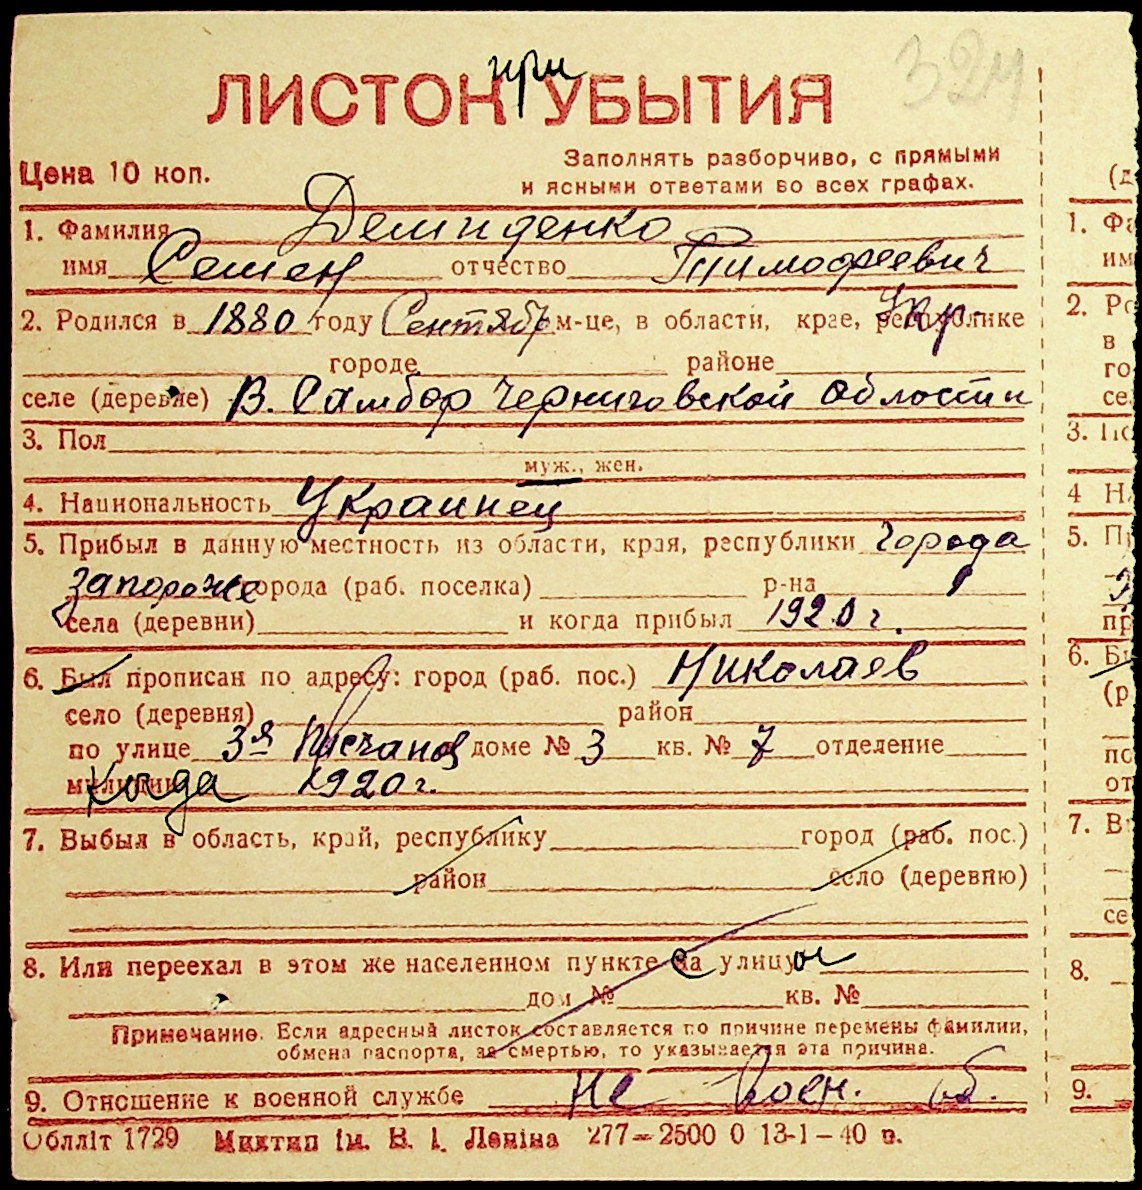 324
при
ЛИСТОК УБЫТИЯ
Цена 10 коп.
Заполнять разборчиво, с прямыми
и ясными ответами во всех графах.
1. Фамилия Демиденко
имя Семен отчество Тимофеевич
2. Родился в 1880 году Сентябр м-це, в области, крае, республике Укр.
городе районе
селе (деревне) В. Самбор Черниговской области
3. Пол
муж., жен.
4. Национальность Украинец
5. Прибыл в данную местность из области, края, республики города
Запороже города (раб. поселка) р-на
села (деревни) и когда прибыл 1920 г.
6. Был прописан по адресу: город (раб. пос.) Николаев
село (деревня) район
по улице 3я Песчаная доме № 3 кв. № 7 отделение
милиции когда 1920 г.
7. Выбыл в область, край, республику город (раб. пос.)
район село (деревню)
8. Или переехал в этом же населенном пункте на с улицу ы
дом № кв. №
Примечание. Если адресный листок составляется по причине перемены фамилии,
обмена паспорта, за смертью, то указывается эта причина.
9. Отношение к военной службе Не воен. об.
Облліт 1729 Миктип ім. В. І. Леніна 277—2500 0 13-1-40 п.
(д
1. Фа
им
2. Ро
в
го
се
3. По
4 На
5. П
пр
6. Бы
(р
по
от
7. В
се
8.
9.